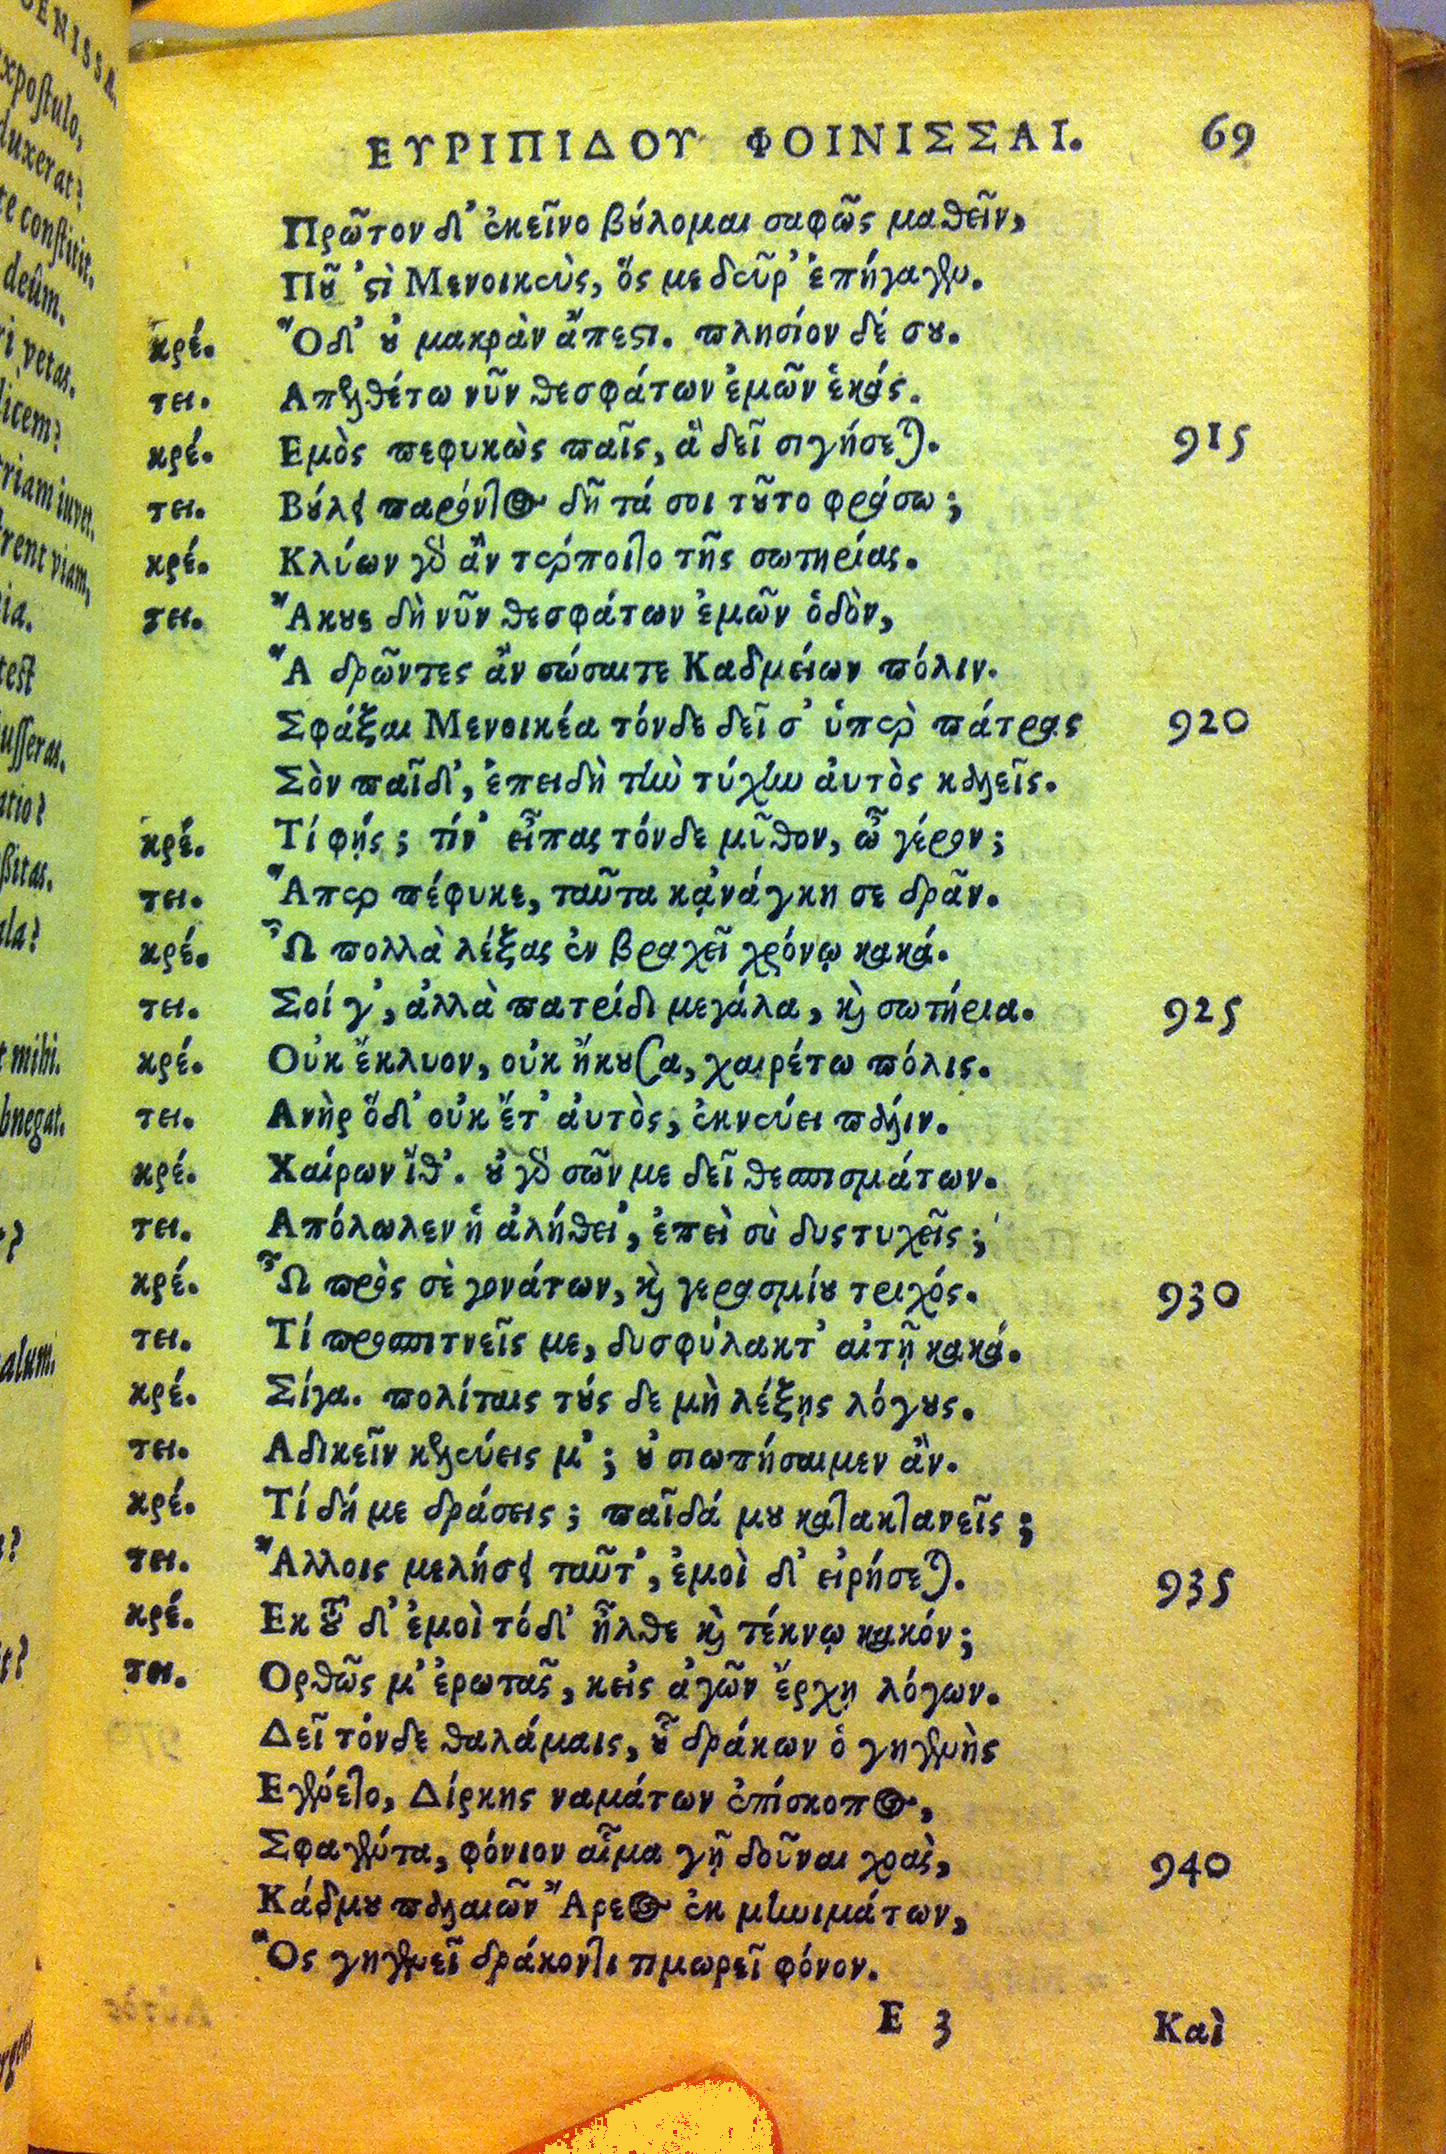 ΕΥΡΙΠΙΔΟΥ ΦΟΙΝΙΣΣΑΙ. 69
Πρῶτον δ' ἐκεῖνο βούλομαι σαφῶς μαθεῖν,
Ποῦ 'στὶ Μενοικεὺς, ὅς με δεῦρ' ἐπήγαγεν.
κρέ. Ὅδ' οὐ μακρὰν ἄπεστι. πλησίον δέ σου.
τει. Απελθέτω νῦν θεσφάτων ἐμῶν ἑκάς.
κρέ. Εμὸς πεφυκὼς παῖς, ἃ δεῖ σιγήσεται. 915
τει. Βούλει παρόντος δῆτά σοι τοῦτο φράσω;
κρέ. Κλύων γὰρ ἂν τέρποιτο τῆς σωτηρίας.
τει. Ἄκουε δὴ νῦν θεσφάτων ἐμῶν ὁδὸν,
Ἃ δρῶντες ἂν σώσαιτε Καδμείων πόλιν.
Σφάξαι Μενοικέα τόνδε δεῖ σ' ὑπὲρ πάτρας 920
Σὸν παῖδ', ἐπειδὴ τὴν τύχην αὐτὸς καλεῖς.
κρέ. Τί φῄς; τίν' εἶπας τόνδε μῦθον, ὦ γέρον;
τει. Ἅπερ πέφυκε, ταῦτα κᾀνάγκη σε δρᾶν.
κρέ. Ὦ πολλὰ λέξας ἐν βραχεῖ χρόνῳ κακά.
τει. Σοί γ', ἀλλὰ πατρίδι μεγάλα, καὶ σωτήρια. 925
κρέ. Οὐκ ἔκλυον, οὐκ ἤκουσα, χαιρέτω πόλις.
τει. Ανὴρ ὅδ' οὐκ ἔτ' αὐτὸς, ἐκνεύει πάλιν.
κρέ. Χαίρων ἴθ'. οὐ γὰρ σῶν με δεῖ θεσπισμάτων.
τει. Απόλωλεν ἡ ἀλήθει', ἐπεὶ σὺ δυστυχεῖς;
κρέ. Ὦ πρὸς σὲ γονάτων, καὶ γερασμίου τριχός.
930
τει. Τί προσπιτνεῖς με, δυσφύλακτ' αἰτῇ κακά.
κρέ. Σίγα. πολίταις τούς δε μὴ λέξῃς λόγους.
τει. Αδικεῖν κελεύεις μ'; οὐ σιωπήσαιμεν ἄν.
κρέ. Τί δή με δράσεις; παῖδά μου κατακτανεῖς;
τει. Ἄλλοις μελήσει ταῦτ', ἐμοὶ δ' εἰρήσεται. 935
κρέ. Εκ τοῦ δ' ἐμοὶ τόδ' ἦλθε καὶ τέκνῳ κακόν;
τει. Ορθῶς μ' ἐρωτᾷς, κεἰς ἀγῶν ἔρχῃ λόγων.
Δεῖ τόνδε θαλάμαις, οὗ δράκων ὁ γηγενὴς
Εγένετο, Δίρκης ναμάτων ἐπίσκοπος,
Σφαγέντα, φόνιον αἷμα γῇ δοῦναι χοαὶς, 940
Κάδμου παλαιῶν Ἄρεος ἐκ μηνιμάτων,
Ὃς γηγενεῖ δράκοντι τιμωρεῖ φόνον.
E 3 Καὶ